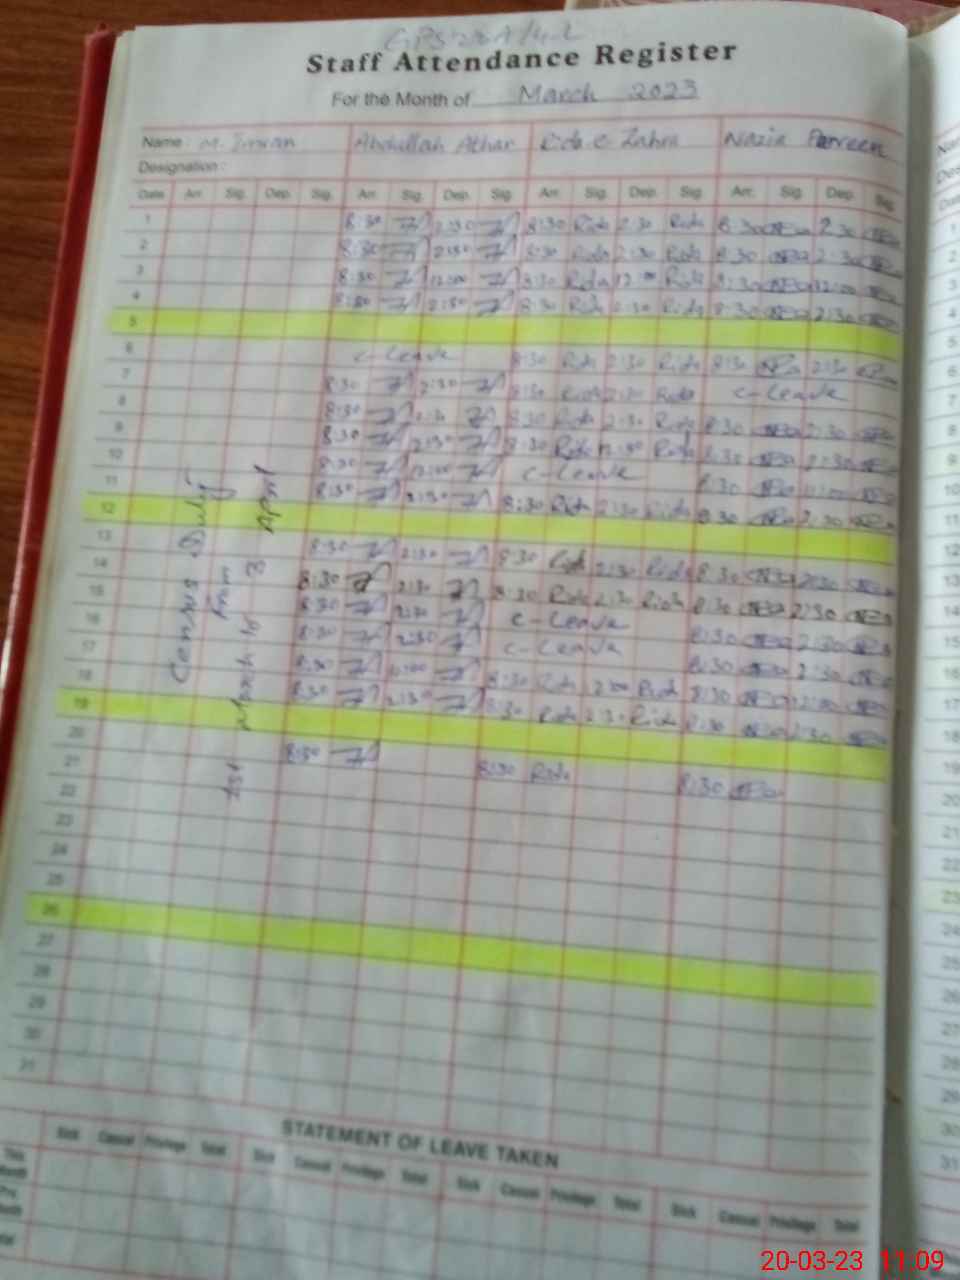 Staff Attendance Register
For the Month of March 2023
Name : M. Imran Abdullah Athar Rida e Zahra Nazia Parveen
Designation :
Date Arr. Sig. Dep. Sig. Arr. Sig. Dep. Sig. Arr. Sig. Dep. Sig. Arr. Sig. Dep. Sig.
1 8:30 2:30 8:30 Rida 2:30 Rida 8:30 2:30
2 8:30 2:30 8:30 Rida 2:30 Rida 8:30 2:30
3 8:30 12:00 8:30 Rida 12:00 Rida 8:30 12:00
4 8:30 2:30 8:30 Rida 2:30 Rida 8:30 2:30
5
6 c-Leave 8:30 Rida 2:30 Rida 8:30 2:30
7 8:30 2:30 8:30 Rida 2:30 Rida c-Leave
8 8:30 2:30 8:30 Rida 2:30 Rida 8:30 2:30
9 8:30 2:30 8:30 Rida 2:30 Rida 8:30 2:30
10 8:30 12:00 c-Leave 8:30 12:00
11 8:30 2:30 8:30 Rida 2:30 Rida 8:30 2:30
12
13 8:30 2:30 8:30 Rida 2:30 Rida 8:30 2:30
14 8:30 2:30 8:30 Rida 2:30 Rida 8:30 2:30
15 8:30 2:30 c-Leave 8:30 2:30
16 8:30 2:30 c-Leave 8:30 2:30
17 8:30 12:00 8:30 Rida 12:00 Rida 8:30 12:00
18 8:30 2:30 8:30 Rida 2:30 Rida 8:30 2:30
19
20 8:30 8:30 Rida 8:30
21
22
23
24
25
26
27
28
29
30
31
Census Duty
from
1st March to 3 April
STATEMENT OF LEAVE TAKEN
Sick Casual Privilege Total Sick Casual Privilege Total Sick Casual Privilege Total Sick Casual Privilege Total
This
Month
Pre.
Month
20-03-23 11:09